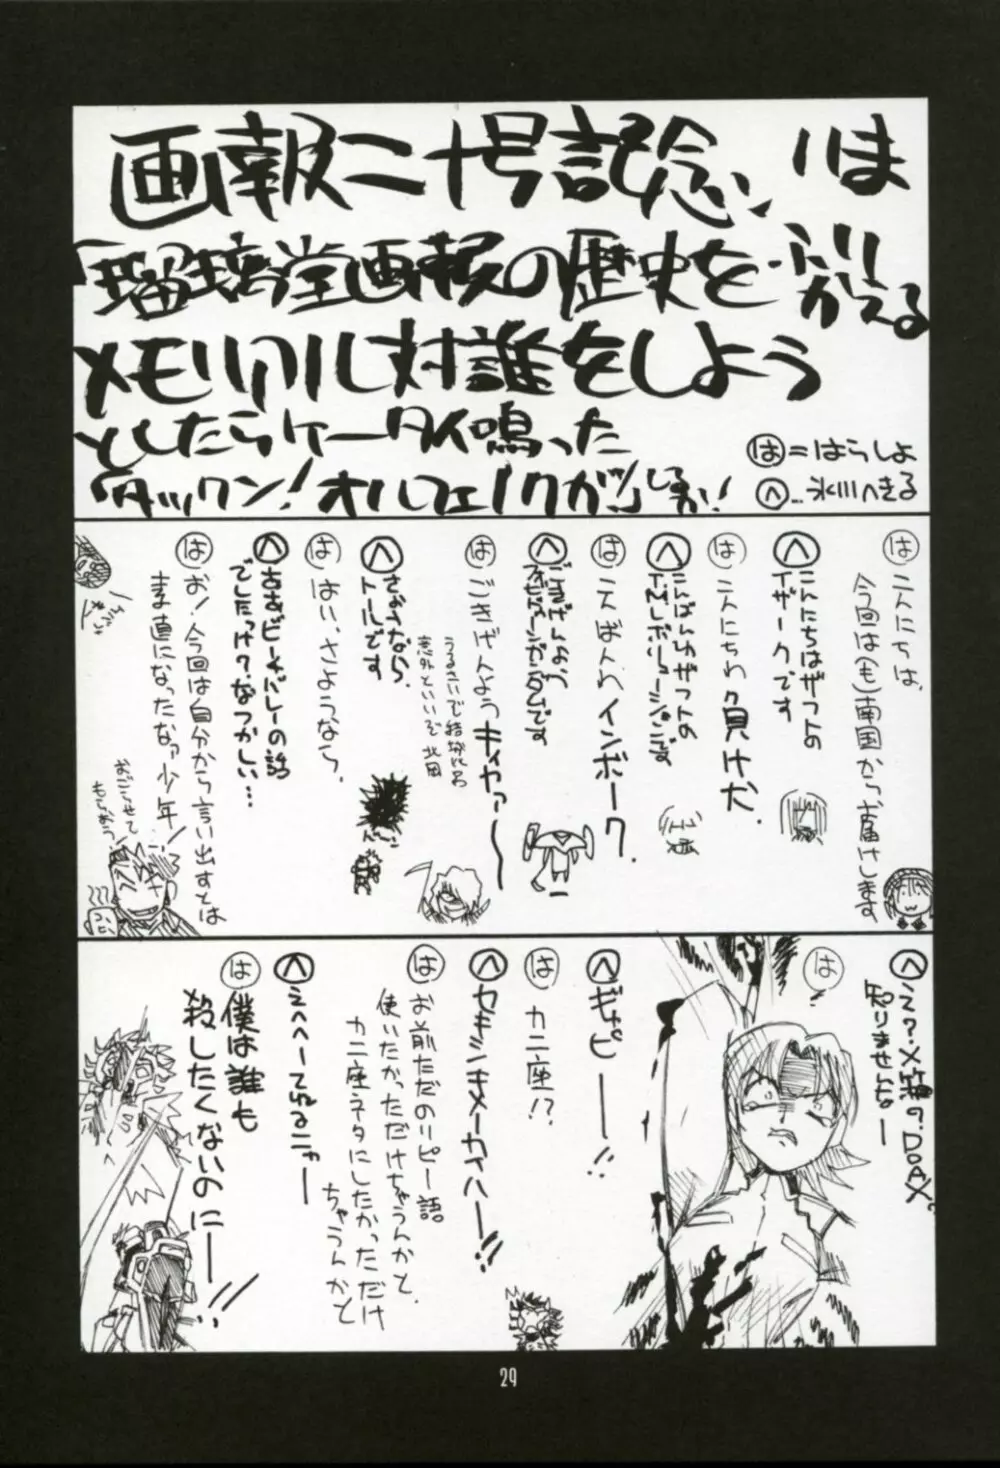 画報二十号記念、いま
「瑠璃堂画報の歴史をふりかえる
メモリアル対談をしよう
としたらケータイ鳴った
「タックン！オルフェノクが」しるか！
は＝はらしょ
へ…氷川へきる
は こんにちは、
今回は(も)南国からお届けします
へ こんにちはザフトの
イザークです
は こんにちわ負け犬．
へ こんばんわザフトの
は こんばんわインボーク．
へ ごきげんよう
は ごきげんようキィヤァ〜
うるさいで結城代名
意外といいで 北田
へ さようなら、
トールです
は はい、さようなら．
へ ああビーチバレーの話
でしたっけ？なつかしい…
は お！今回は自分から言い出すとは
素直になったなァ少年！
おごらせて
もらおう！
へ え？X箱の？DOAX？
知りませんよー
は ！
へ ギャピーーー！！
は カニ座！？
へ セキシキメーカイハー！！
は お前ただのリピー語
使いたかっただけちゃうんかと．
カニ座ネタにしたかっただけ
ちゃうんかと
へ えへへーてれるニャーー
は 僕は誰も
殺したくないのにーー！！
29